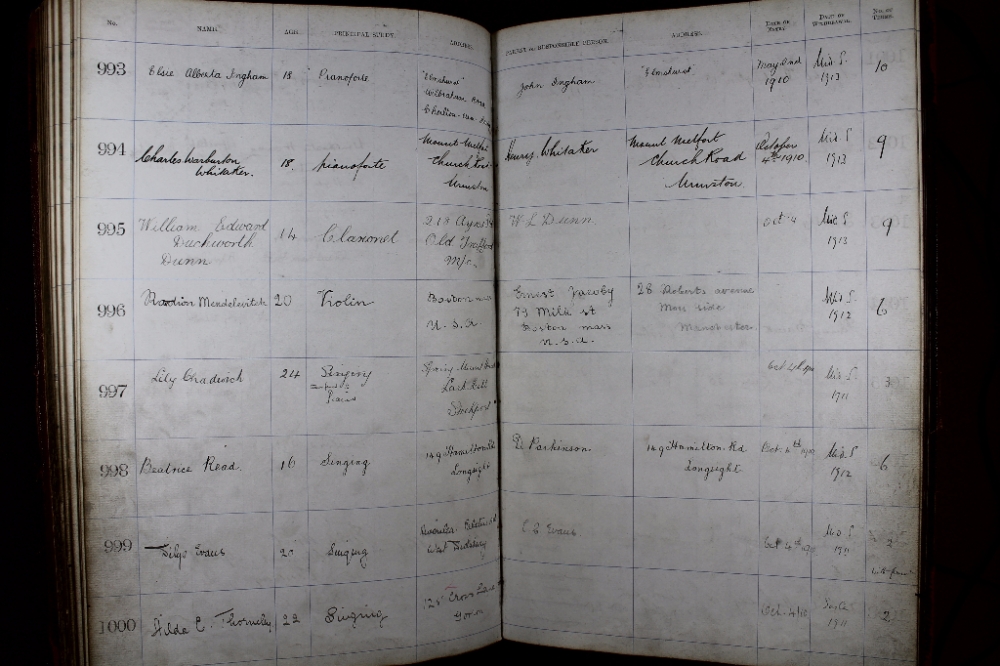 No. NAME. AGE. PRINCIPAL STUDY. ADDRESS. PARENT OR RESPONSIBLE PERSON. ADDRESS. DATE OF ENTRY. DATE OF WITHDRAWAL. No. OF TERMS.
993 Elsie Alberta Ingham 18 Pianoforte "Elmhurst" John Ingham "Elmhurst" May 2nd 1910 Mid S. 1913 10
Wilbraham Road
Chorlton-cum-Hardy
994 Charles Warburton 18. pianoforte Mount Melfort Henry. Whitaker Mount Melfort October 4th 1910. Mid S 1913 9
Whitaker. Church Road Church Road
Urmston Urmston.
995 William Edward 14 Clarionet 213 Ayres Rd W L Dunn Oct 4 Mid S 1913 9
Duckworth Old Trafford
Dunn M/c.
996 Mendelevitch 20 Violin Boston Ernest Jacoby 28 Roberts avenue Mid S. 1912 6
U.S.A. 89 Milk st Moss side
Boston mass Manchester.
U.S.A.
997 Lily Chadwick 24 Singing Mid S. 1911 3
Piano Stockport
998 Beatrice Read. 16 Singing 149 Hamilton Rd D. Parkinson. 149 Hamilton Rd Oct. 4th 1910 Mid. S 1912 6
Longsight Longsight
999 Evans 20 Singing West Didsbury Evans Oct 4th 1910 Mid S 1911 2
1000 Hilda E. Thornely 22 Singing 125 Cross Lane Oct. 4/10 1911 2
Gorton